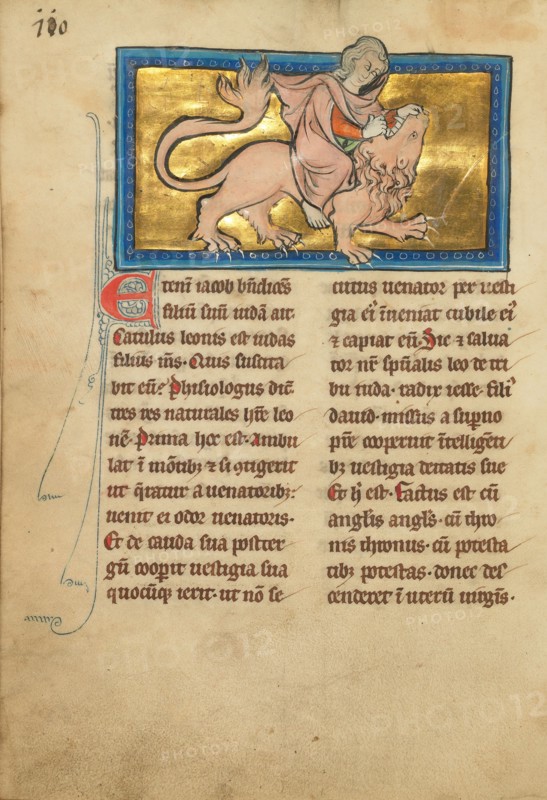 Etenī iacob bn̄dicēs
filiū suū iudā ait.
Catulus leonis est iudas
filius m̄s. Quis suscita
bit eū? Phisiologus dic̄.
tres res naturales hr̄e leo
nē. Prima hec est. Ambu
lat ī mōtibꝫ ⁊ si ꝯtigerit
ut q̄ratur a uenatoribꝫ:
uenit ei odor uenatoris.
Et de cauda sua poster
gū coopit uestigia sua
quocūqꝫ ierit. ut nō se
cutus uenator per uesti
gia ei᾽ īueniat cubile ei᾽
⁊ capiat eū. Sic ⁊ salua
tor nr̄ spūalis leo de tri
bu iuda. radix iesse. fili᾽
dauid. missus a supno
pr̄e cooperuit ītelligēti
bꝫ uestigia deitatis sue
Et h᾽ est. Factus est cū
angl̄is angl̄s. cū thro
nis thronus. cū potesta
tibꝫ potestas. donec des
cenderet ī uterū uirgīs.
PHOTO12